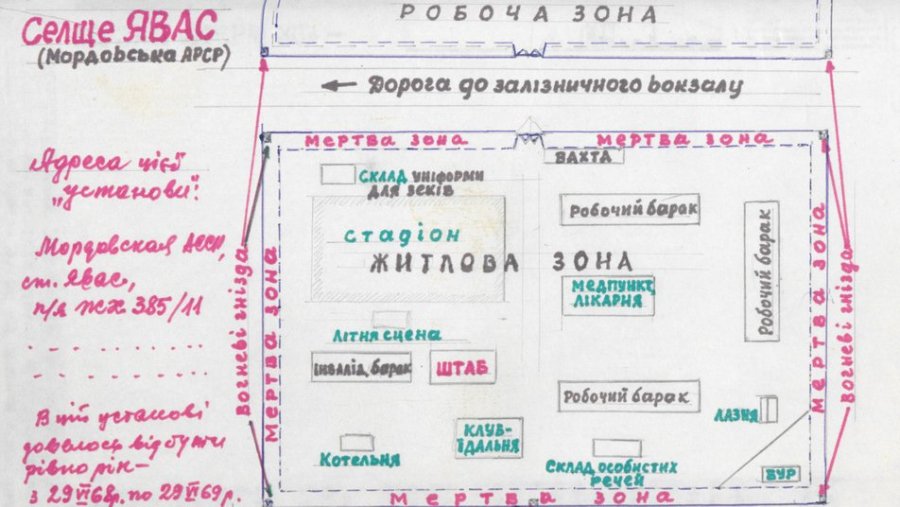 Селще ЯВАС
(Мордовська АРСР)
РОБОЧА ЗОНА
← Дорога до залізничного вокзалу
мертва зона
мертва зона
ВАХТА
Адреса цієї
"установи":
Мордовская АССР,
ст. Явас,
п/я ЖХ 385/11
В цій установі
довелось відбути
рівно рік –
з 29 VI 68р. по 29 VI 69 р.
Вогневі гнізда
Мертва зона
СКЛАД УНІФОРМИ
ДЛЯ ЗЕКІВ
стадіон
ЖИТЛОВА ЗОНА
Робочий барак
Робочий барак
МЕДПУНКТ,
ЛІКАРНЯ
ЛІТНЯ СЦЕНА
Інвалід. барак
ШТАБ
Робочий барак
ЛАЗНЯ
КЛУБ-
ЇДАЛЬНЯ
Котельня
Склад особистих
речей
БУР
мертва зона
Вогневі гнізда
Мертва зона